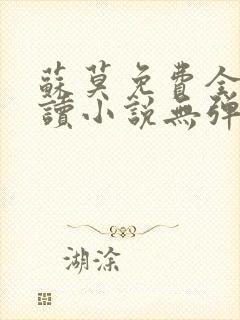 蘇莫免費全
讀小說無彈
湖涂